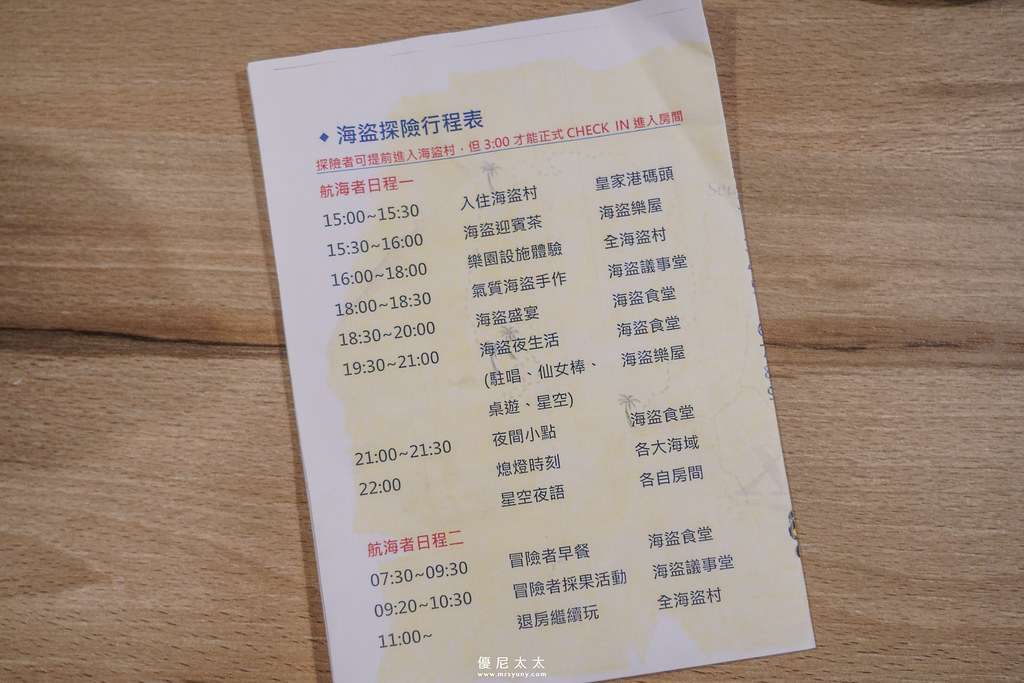 ◆ 海盜探險行程表
探險者可提前進入海盜村，但 3:00 才能正式 CHECK IN 進入房間
航海者日程一
15:00~15:30 入住海盜村 皇家港碼頭
15:30~16:00 海盜迎賓茶 海盜樂屋
16:00~18:00 樂園設施體驗 全海盜村
18:00~18:30 氣質海盜手作 海盜議事堂
18:30~20:00 海盜盛宴 海盜食堂
19:30~21:00 海盜夜生活 海盜食堂
(駐唱、仙女棒、 海盜樂屋
桌遊、星空)
21:00~21:30 夜間小點 海盜食堂
22:00 熄燈時刻 各大海域
星空夜語 各自房間
航海者日程二
07:30~09:30 冒險者早餐 海盜食堂
09:20~10:30 冒險者採果活動 海盜議事堂
11:00~ 退房繼續玩 全海盜村
優尼太太
www.mrsyuny.com